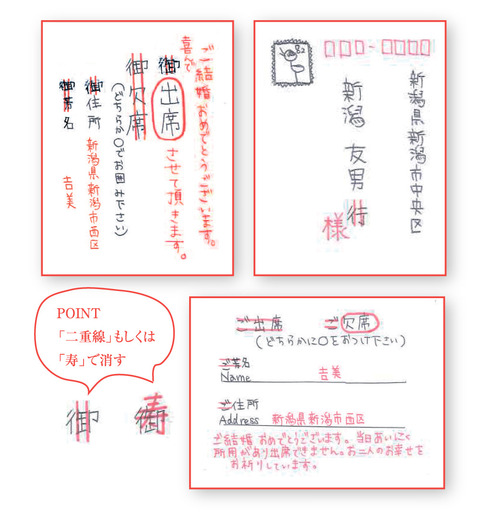 ご結婚おめでとうございます。
喜んで
御出席させて頂きます。
御欠席
(どちらか〇でお囲み下さい)
御住所 新潟県新潟市西区
御芳名 吉美
62
新潟県新潟市中央区
新潟 友男 行
様
POINT
「二重線」もしくは
「寿」で消す
御
御
寿
ご出席 ご欠席
(どちらかに〇をおつけ下さい)
ご芳名
Name 吉美
ご住所
Address 新潟県新潟市西区
ご結婚おめでとうございます。当日あいにく
所用があり出席できません。お二人のお幸せを
お祈りしています。